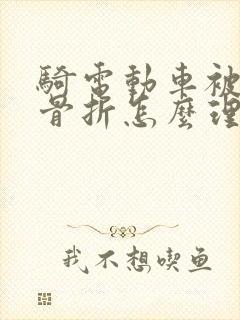 騎電動車被
骨折怎麼理
我不想喫鱼